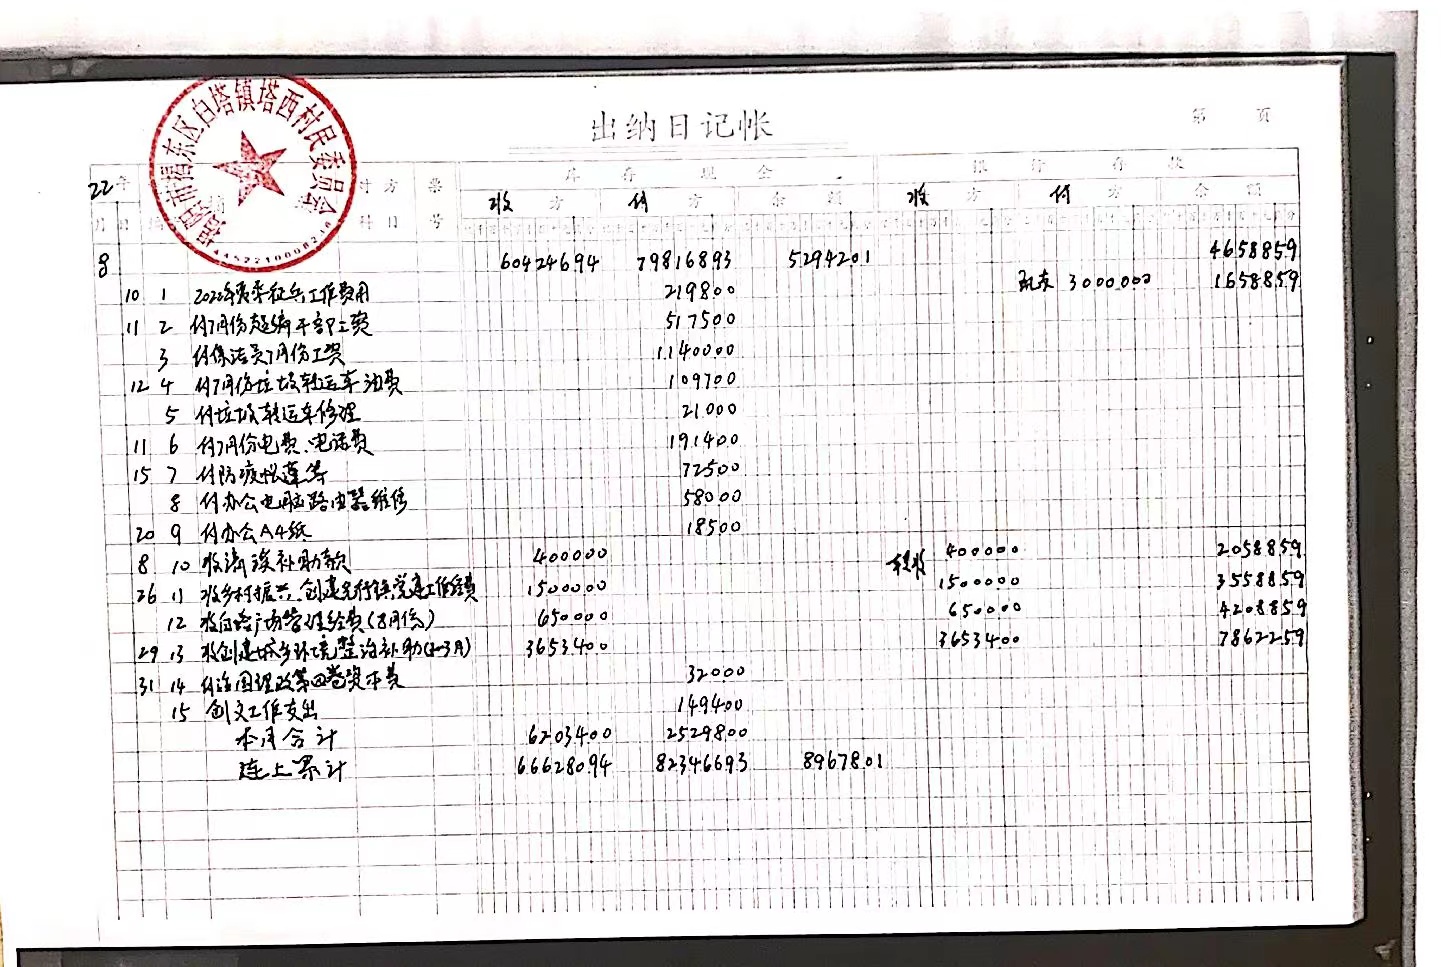 出纳日记帐
第 页
揭阳市揭东区白塔镇塔西村民委员会
22年 对方 票 库存现金 银行存款
月 日 科目 号 收方 付方 余额 收方 付方 余额
8 60424694 79816893 5294201 4658859
10 1 2022年夏季征兵工作费用 219800 3000000 1658859
11 2 付7月份超编干部工资 517500
3 付保洁员7月份工资 1140000
12 4 付7月份垃圾转运车油费 109700
5 付垃圾转运车修理 21000
11 6 付7月份电费、电话费 191400
15 7 付防疫帐蓬等 72500
8 付办公电脑路由器维修 58000
20 9 付办公A4纸 18500
8 10 收清淤补助款 400000 400000 2058859
26 11 收乡村振兴、创建先行镇党建工作经费 1500000 1500000 3558859
12 收白塔广场管理经费(8月份) 650000 650000 4208859
29 13 收创建城乡环境整治补助(2-3月) 3653400 3653400 7862259
31 14 付治国理政第四卷资本费 32000
15 创文工作支出 149400
本月合计 6203400 2529800
连上累计 66628094 82346693 8967801